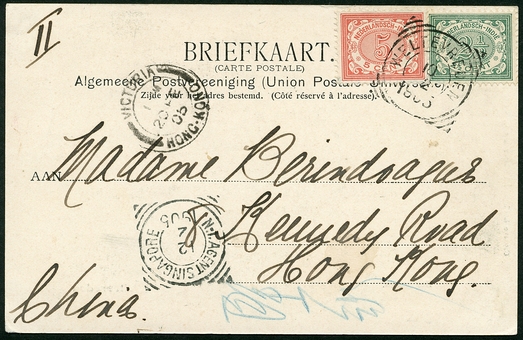 II
BRIEFKAART.
(CARTE POSTALE)
Algemeene Postvereeniging (Union Postale Universelle)
Zijde voor het adres bestemd. (Côté réservé à l'adresse).
NEDERLANDSCH-INDIË
5
NEDERLANDSCH-INDIË
WELTEVREDEN
1905
VICTORIA HONG-KONG
05
AAN Madame Berindoagues
8 Kennedy Road
Hong Kong.
China.
N.I. AGENT SINGAPORE
12
2
1905